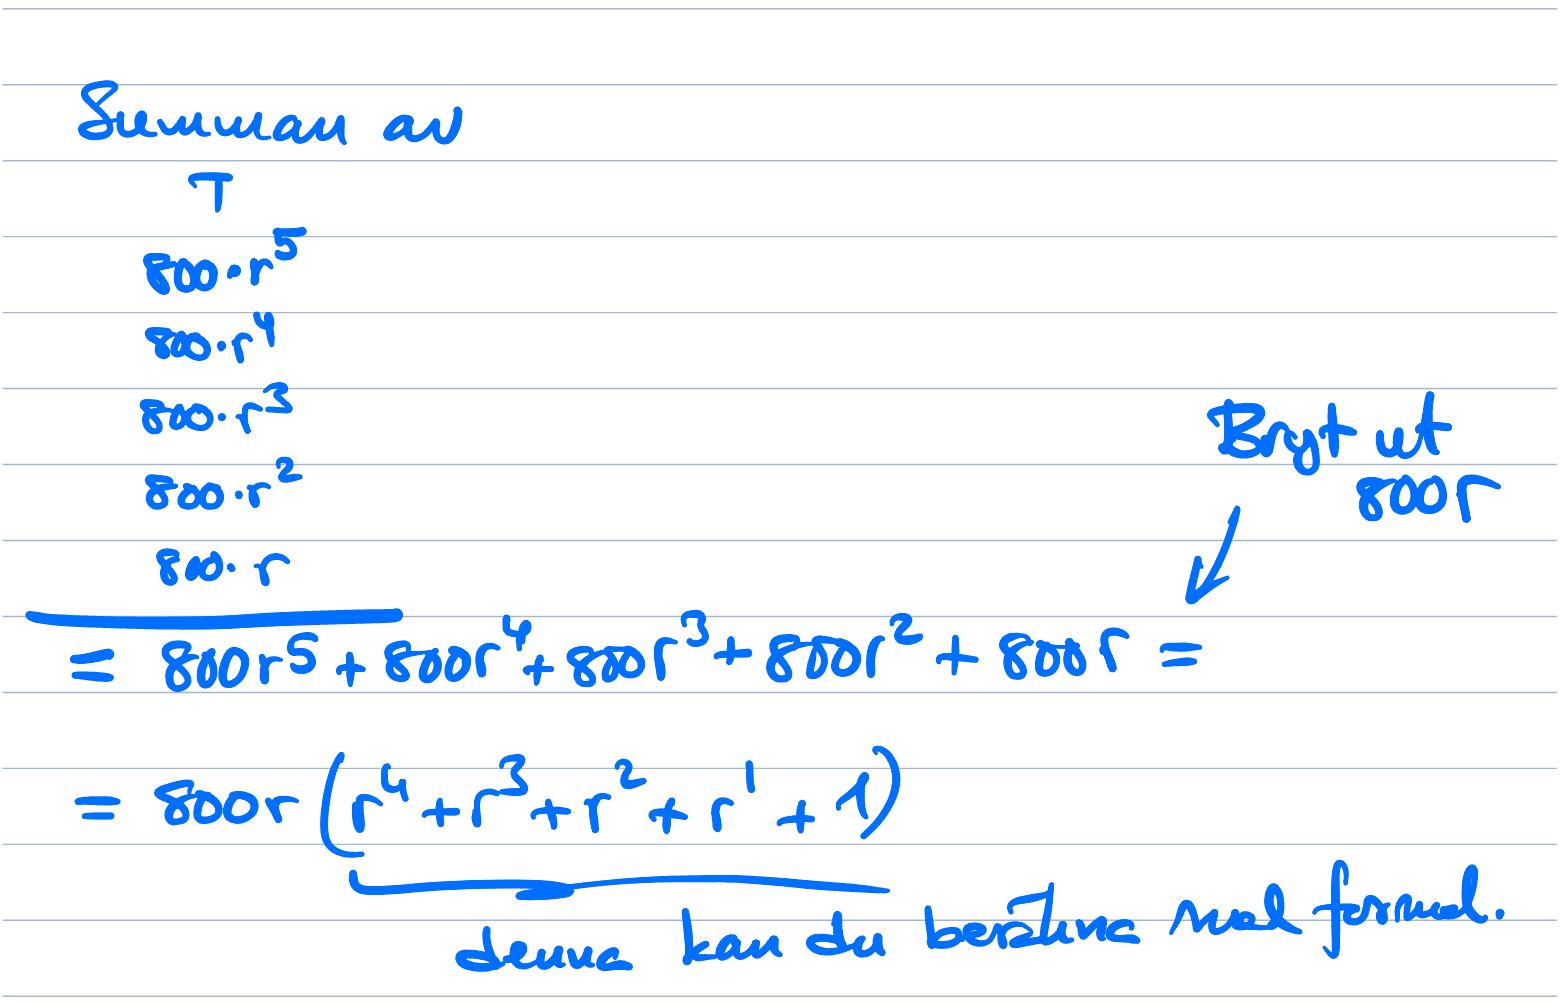 Summan av
T
800·r⁵
800·r⁴
800·r³
800·r²
800·r
Bryt ut
800r
= 800r⁵ + 800r⁴ + 800r³ + 800r² + 800r =
= 800r (r⁴ + r³ + r² + r¹ + 1)
denna kan du beräkna med formel.